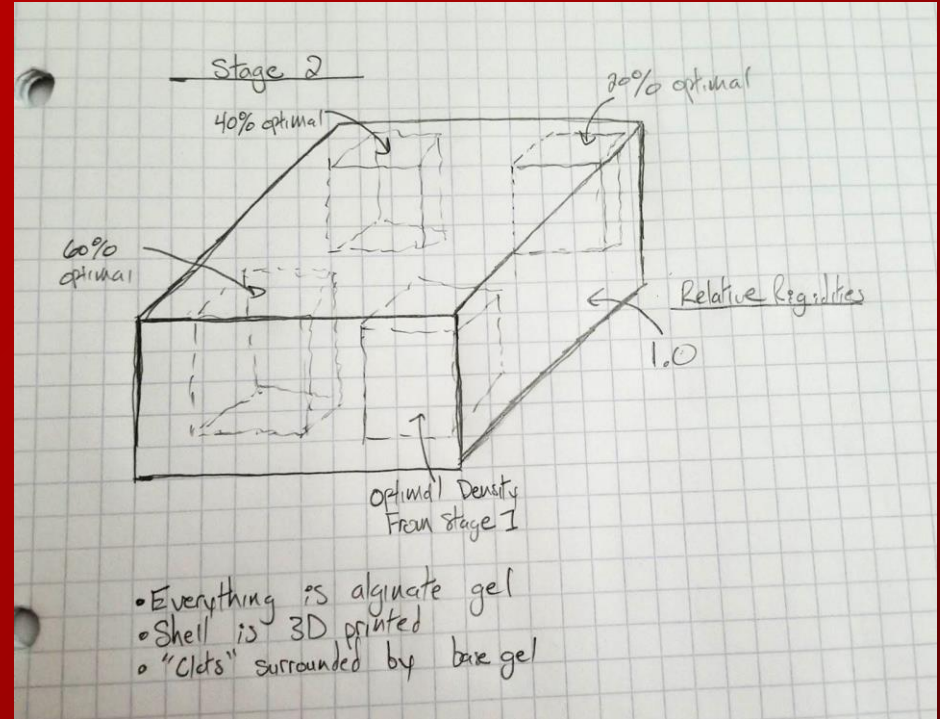 Stage 2
20% optimal
40% optimal
60%
optimal
Relative Rigidities
1.0
Optimal Density
From Stage I
• Everything is alginate gel
• Shell is 3D printed
• "Clots" surrounded by base gel